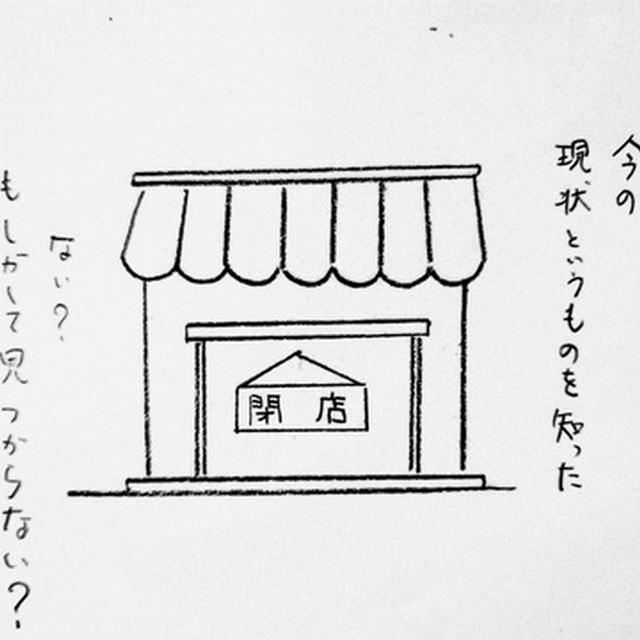 今の
現状というものを知った
閉店
ない？
もしかして見つからない？